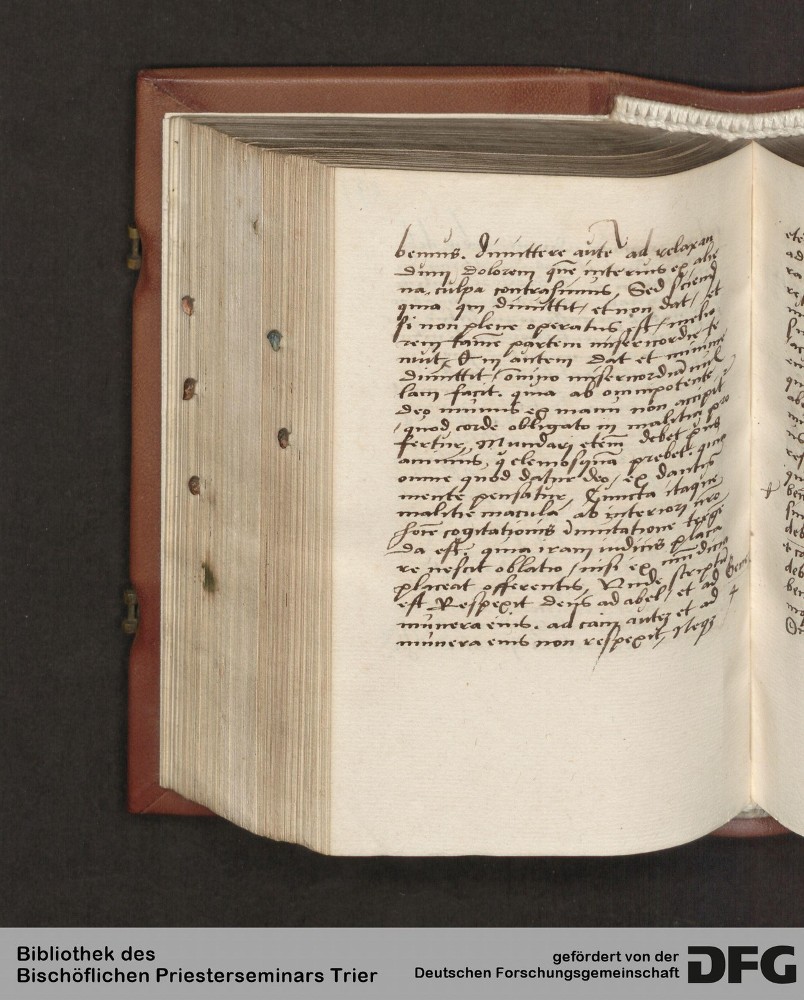 bemus. Dimittere aūte ad relaxan
dum dolorem quē interius ex alie
na culpa contraximus. Sed sciend
quia qui dimittit / et non dat / et
si non plene operatus est / melio
rem tamē partem misericordie se
cuit. Qui autem dat et minime
dimittit / omīno misericordiā nul
lam facit. quia ab omnipotente
deo munus ex manu non accipit
quod corde obligato in malitia pro
fertur. Mundari etem̄ debet prius
animus, q̄ elemosynā prebet. quia
omne quod datur deo / ex dantis
mente pensatur. Cuncta itaque
malitie macula ab interiori nro
hoīe cogitationis īmutatione terge
da est. quia iram iudicis placa
re nescit oblatio / nisi ex mundicia
placeat offerentis. Vnde scriptū
est Respexit deus ad abel / et ad
munera eius. ad cain autē et ad
munera eius non respexit. Neqȝ
Gene.
4
Bibliothek des
Bischöflichen Priesterseminars Trier
gefördert von der
Deutschen Forschungsgemeinschaft
DFG